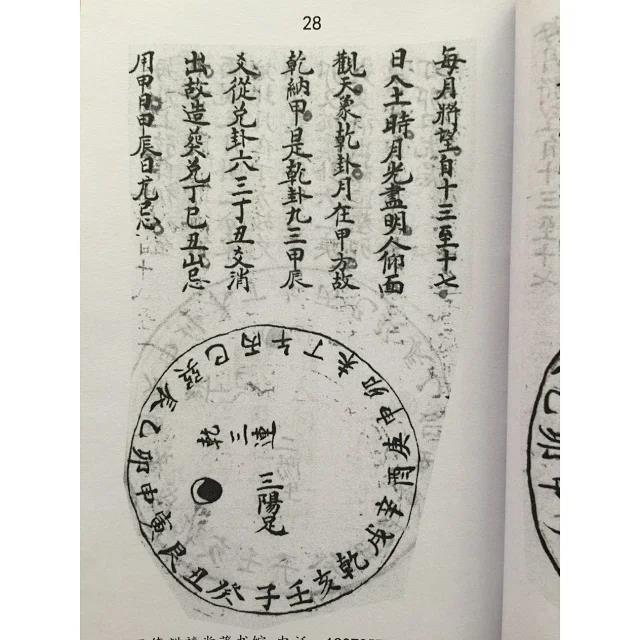 28
每月將望自十三至十七
日入土時月光盡明人仰面
觀天象乾卦月在甲方故
乾納甲是乾卦九三甲辰
爻從兌卦六三丁丑爻消
出故造葵兌丁巳丑山忌
用甲日甲辰日尤忌
丙午丁未坤申庚酉辛戌乾亥壬子癸丑艮寅甲卯乙辰巽巳
乾三連
三陽足